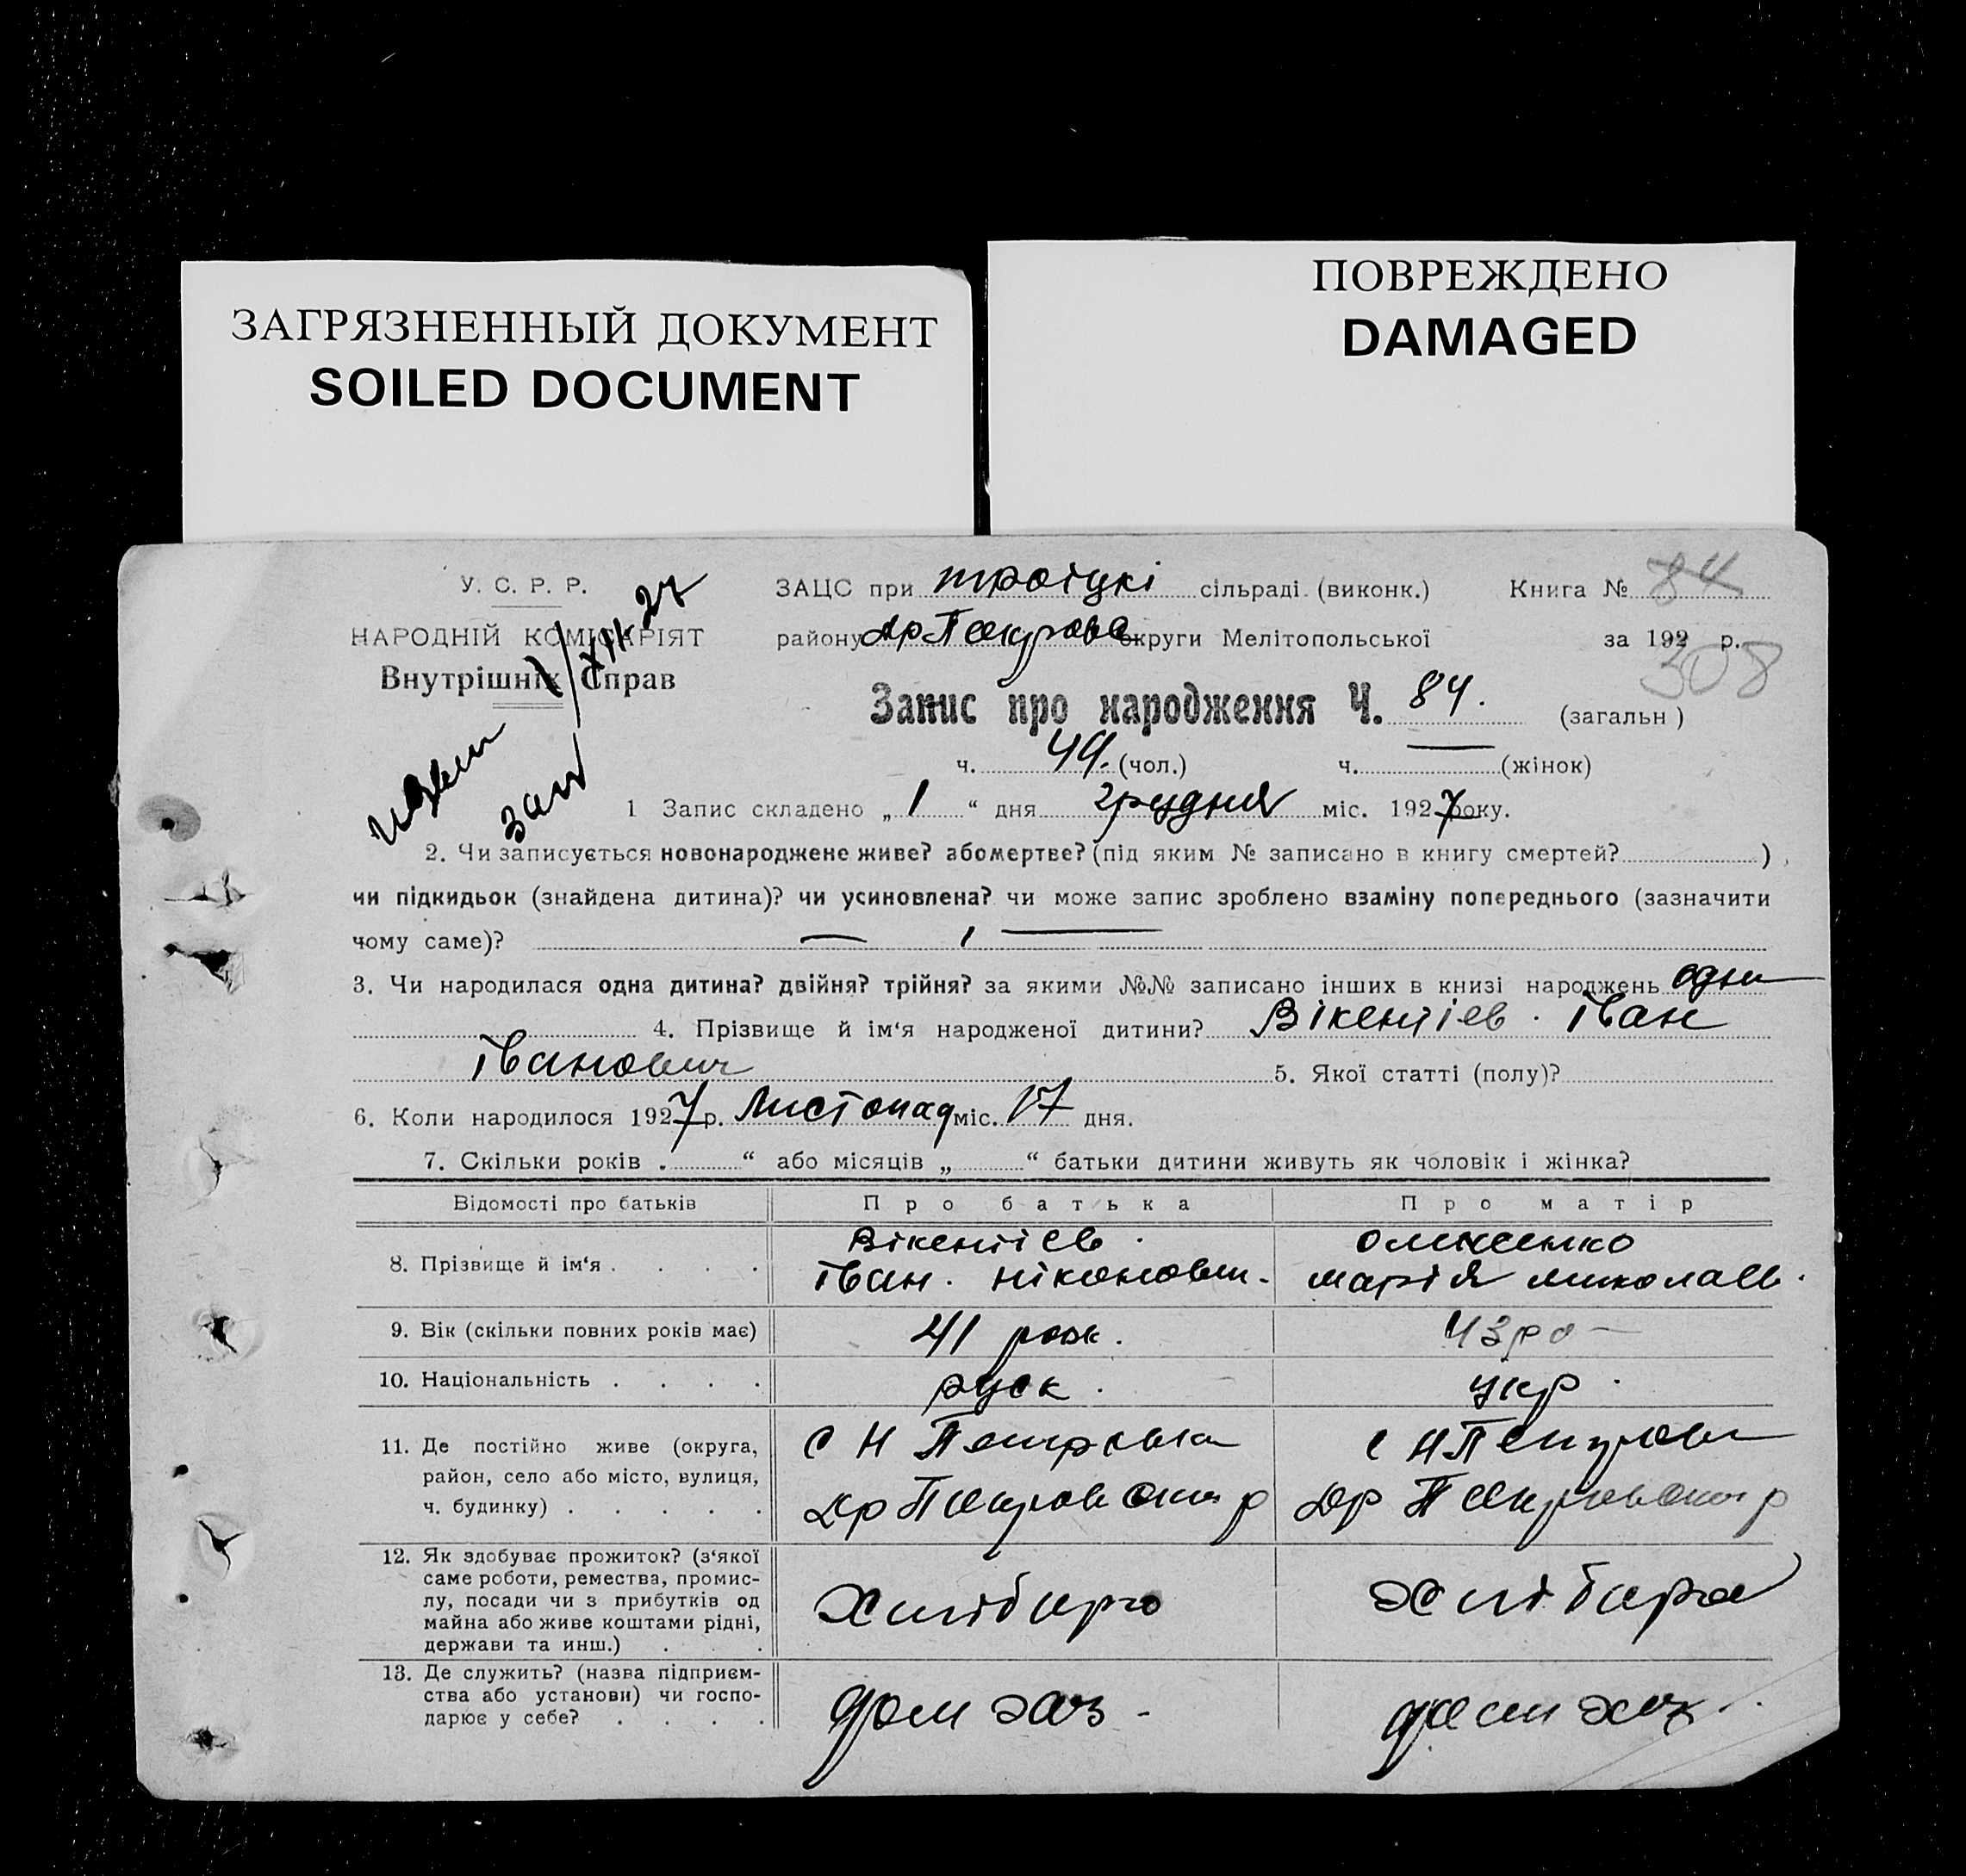 ЗАГРЯЗНЕННЫЙ ДОКУМЕНТ
SOILED DOCUMENT
ПОВРЕЖДЕНО
DAMAGED
У. С. Р. Р.
НАРОДНІЙ КОМІСАРІЯТ
Внутрішніх Справ
ЗАЦС при троіцкі сільраді (виконк.) Книга № 84
району округи Мелітопольської за 192 р.
308
Запис про народження Ч. 84. (загальн)
ч. 49. (чол.) ч. — (жінок)
1 Запис складено „ 1 “ дня грудня міс. 1927 року.
2. Чи записується новонароджене живе? або мертве? (під яким № записано в книгу смертей? )
чи підкидьок (знайдена дитина)? чи усиновлена? чи може запис зроблено взаміну попереднього (зазначити
чому саме)?
3. Чи народилася одна дитина? двійня? трійня? за якими №№ записано інших в книзі народжень одна
4. Прізвище й ім‘я народженої дитини? Вікентіев. Іван
Іванович 5. Якої статті (полу)?
6. Коли народилося 1927 р. Листопад міс. 17 дня.
7. Скільки років „ “ або місяців „ “ батьки дитини живуть як чоловік і жінка?
Відомості про батьків Про батька Про матір
8. Прізвище й ім‘я . . . . Вікентіев. 
Іван. Ніконович. Марія Миколаев.
9. Вік (скільки повних років має) 41 рок. 43 ро—
10. Національність . . . . руск. укр.
11. Де постійно живе (округа, С Н Петровка
район, село або місто, вулиця,
ч. будинку) . . . . .
12. Як здобуває прожиток? (з‘якої
саме роботи, ремества, промис-
лу, посади чи з прибутків од
майна або живе коштами рідні,
держави та инш.) . .
13. Де служить? (назва підприєм-
ства або установи) чи госпо-
дарює у себе? . . . . дом хоз. дом хоз.